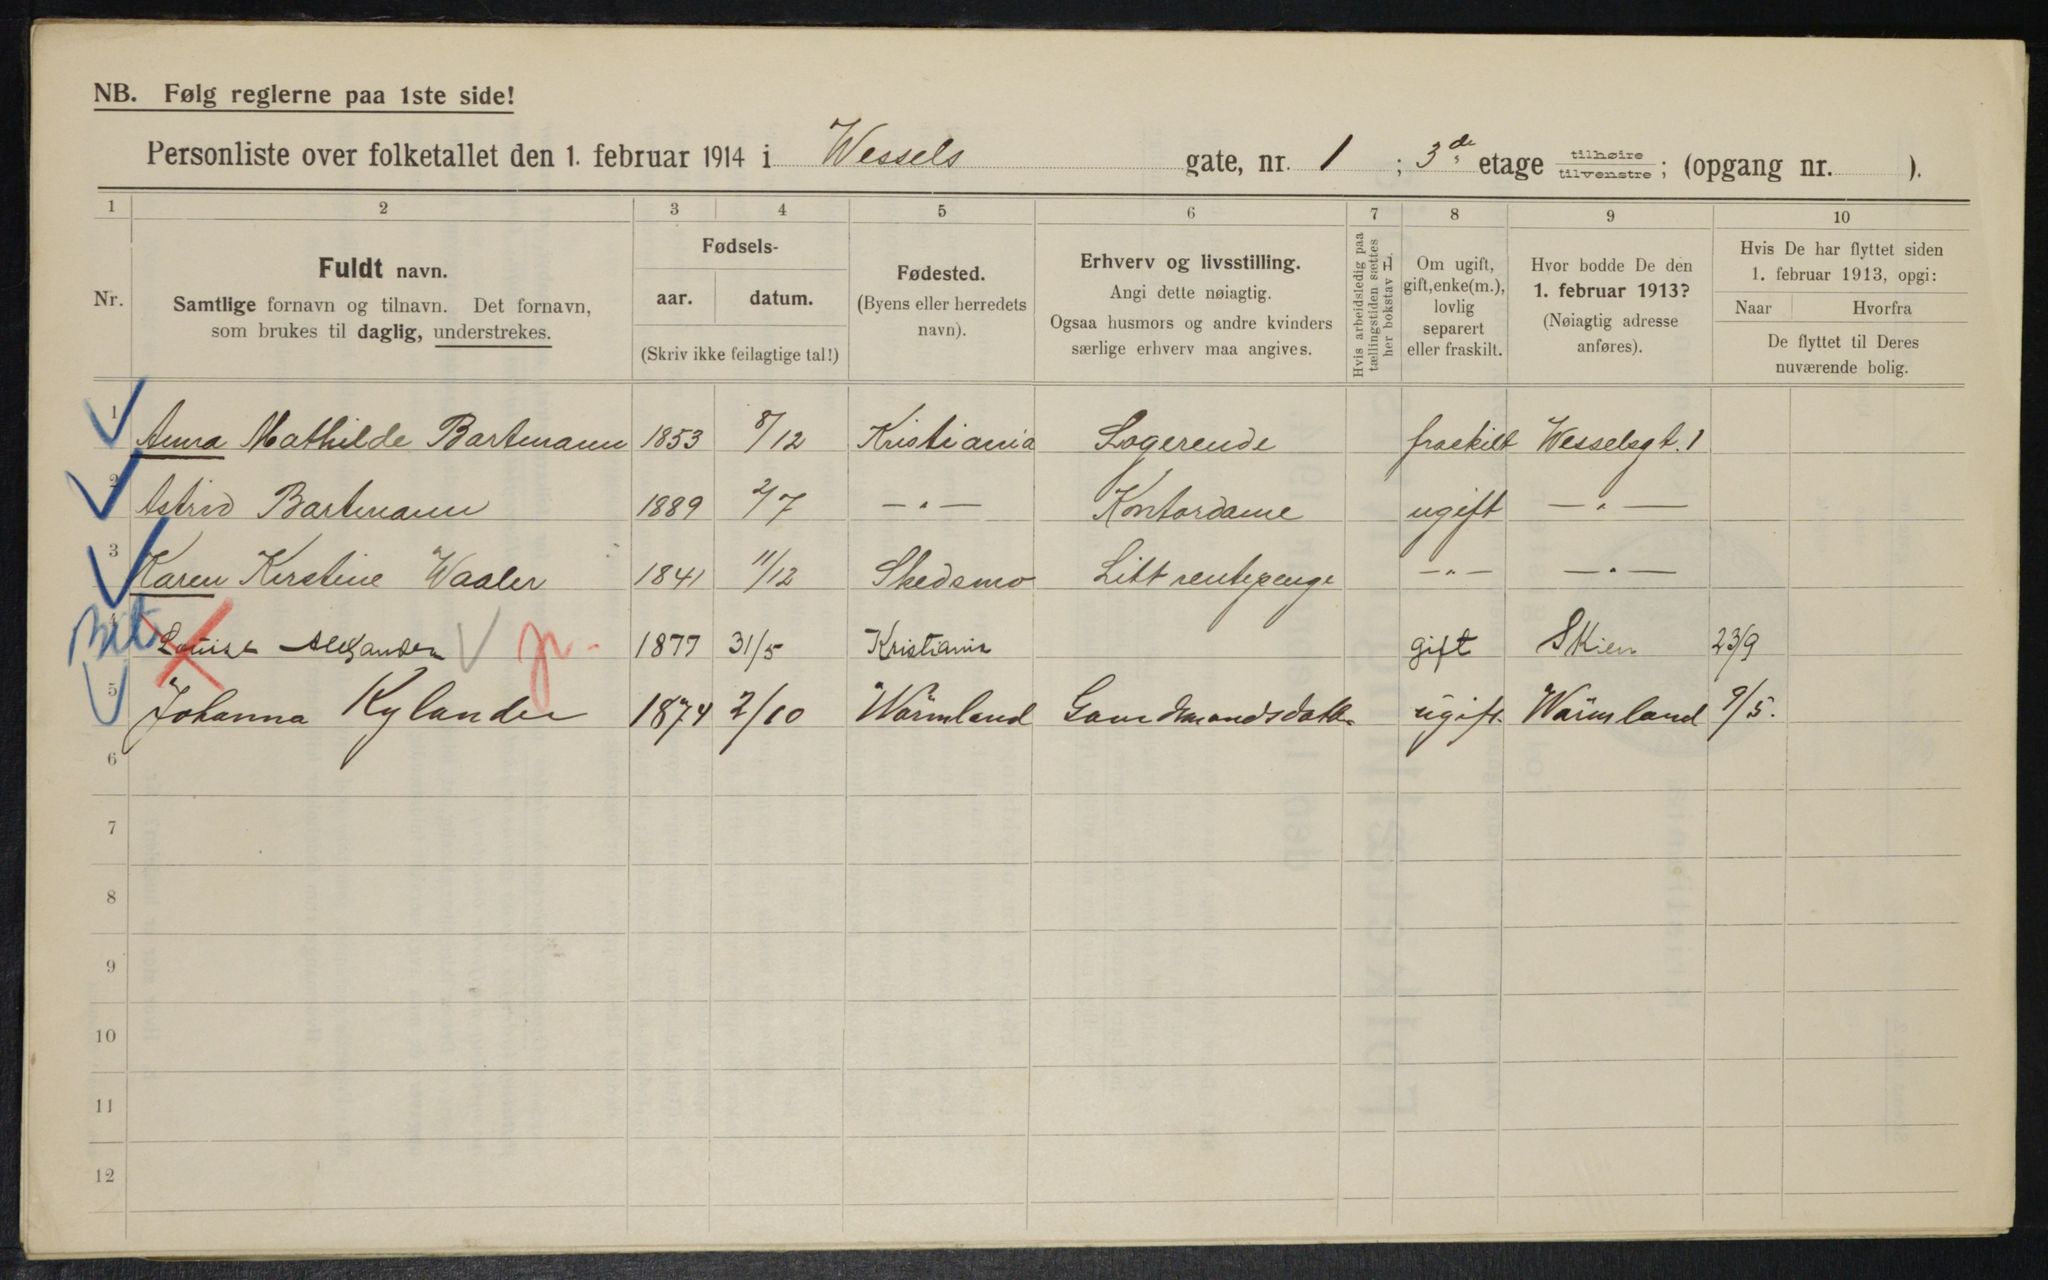 NB. Følg reglerne paa 1ste side!
Personliste over folketallet den 1. februar 1914 i Wessels gate, nr. 1 ; 3de etage tilhøire tilvenstre ; (opgang nr. ).
1 2 3 4 5 6 7 8 9 10
Nr.
Fuldt navn.
Samtlige fornavn og tilnavn. Det fornavn,
som brukes til daglig, understrekes.
Fødsels-
aar. datum.
(Skriv ikke feilagtige tal!)
Fødested.
(Byens eller herredets
navn).
Erhverv og livsstilling.
Angi dette nøiagtig.
Ogsaa husmors og andre kvinders
særlige erhverv maa angives.
Hvis arbeidsledig paa
tællingstiden sættes
her bokstav L.
Om ugift,
gift, enke(m.),
lovlig
separert
eller fraskilt.
Hvor bodde De den
1. februar 1913?
(Nøiagtig adresse
anføres).
Hvis De har flyttet siden
1. februar 1913, opgi:
Naar Hvorfra
De flyttet til Deres
nuværende bolig.
1 Anna Mathilde Bartmann 1853 8/12 Kristiania Logerende fraskilt Wesselsgt. 1
2 Astrid Bartmann 1889 2/7 —"— Kontordame ugift —"—
3 Karen Kirstine Waaler 1841 11/12 Skedsmo Litt rentepenge —"— —"—
4 Louise Alexander 1877 31/5 Kristiania gift Skien 23/9
5 Johanna Kylander 1874 2/10 Wärmland ugift Wärmland 9/5.
6
7
8
9
10
11
12